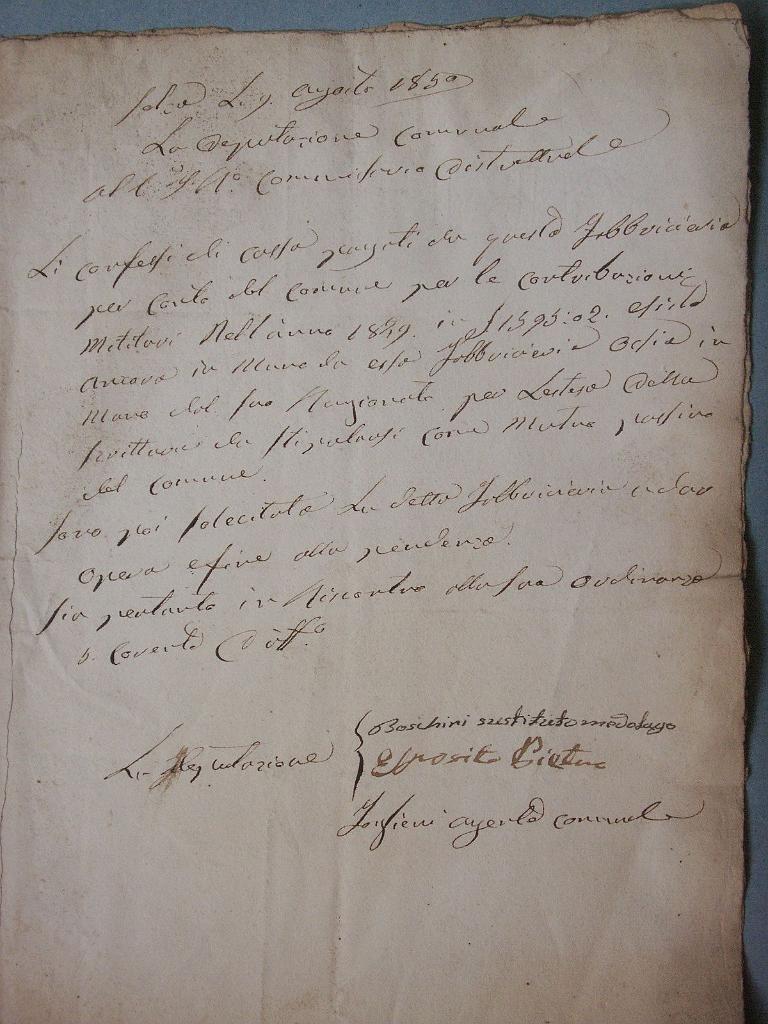 Solza Li 9. Agosto 1850
La Deputazione Comunale
all I. R. Commissario Distrettuale
Li confessi di cassa pagati da questa Fabbricieria
per conto del Comune per le contribuzioni
Militari Nell'anno 1849. in £ 1595:02. esista
ancora in Mano da essa Fabbricieria Ossia in
Mano del suo Ragionato per Lestesa Della
scrittura da Stipularsi come Mutuo passivo
del Comune.
Sara poi solecitata La detta Fabbriciera a dar
Opera e fine alla pendenza.
Sia pertanto in Riscontro alla sua Ordinanza
Corente D'uff.o
La Deputazione
Boschini sustituto medolago
Esposito Pietro
agente comunale